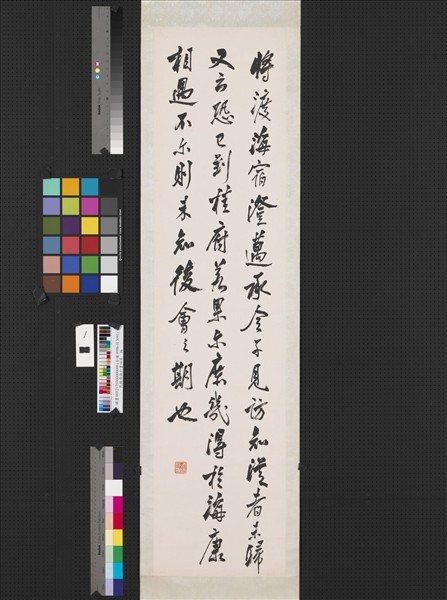 将渡海宿澄邁承令子見訪知從者未歸
又云恐已到桂府若果尔庶幾得於海康
相遇不尔則未知後會之期也